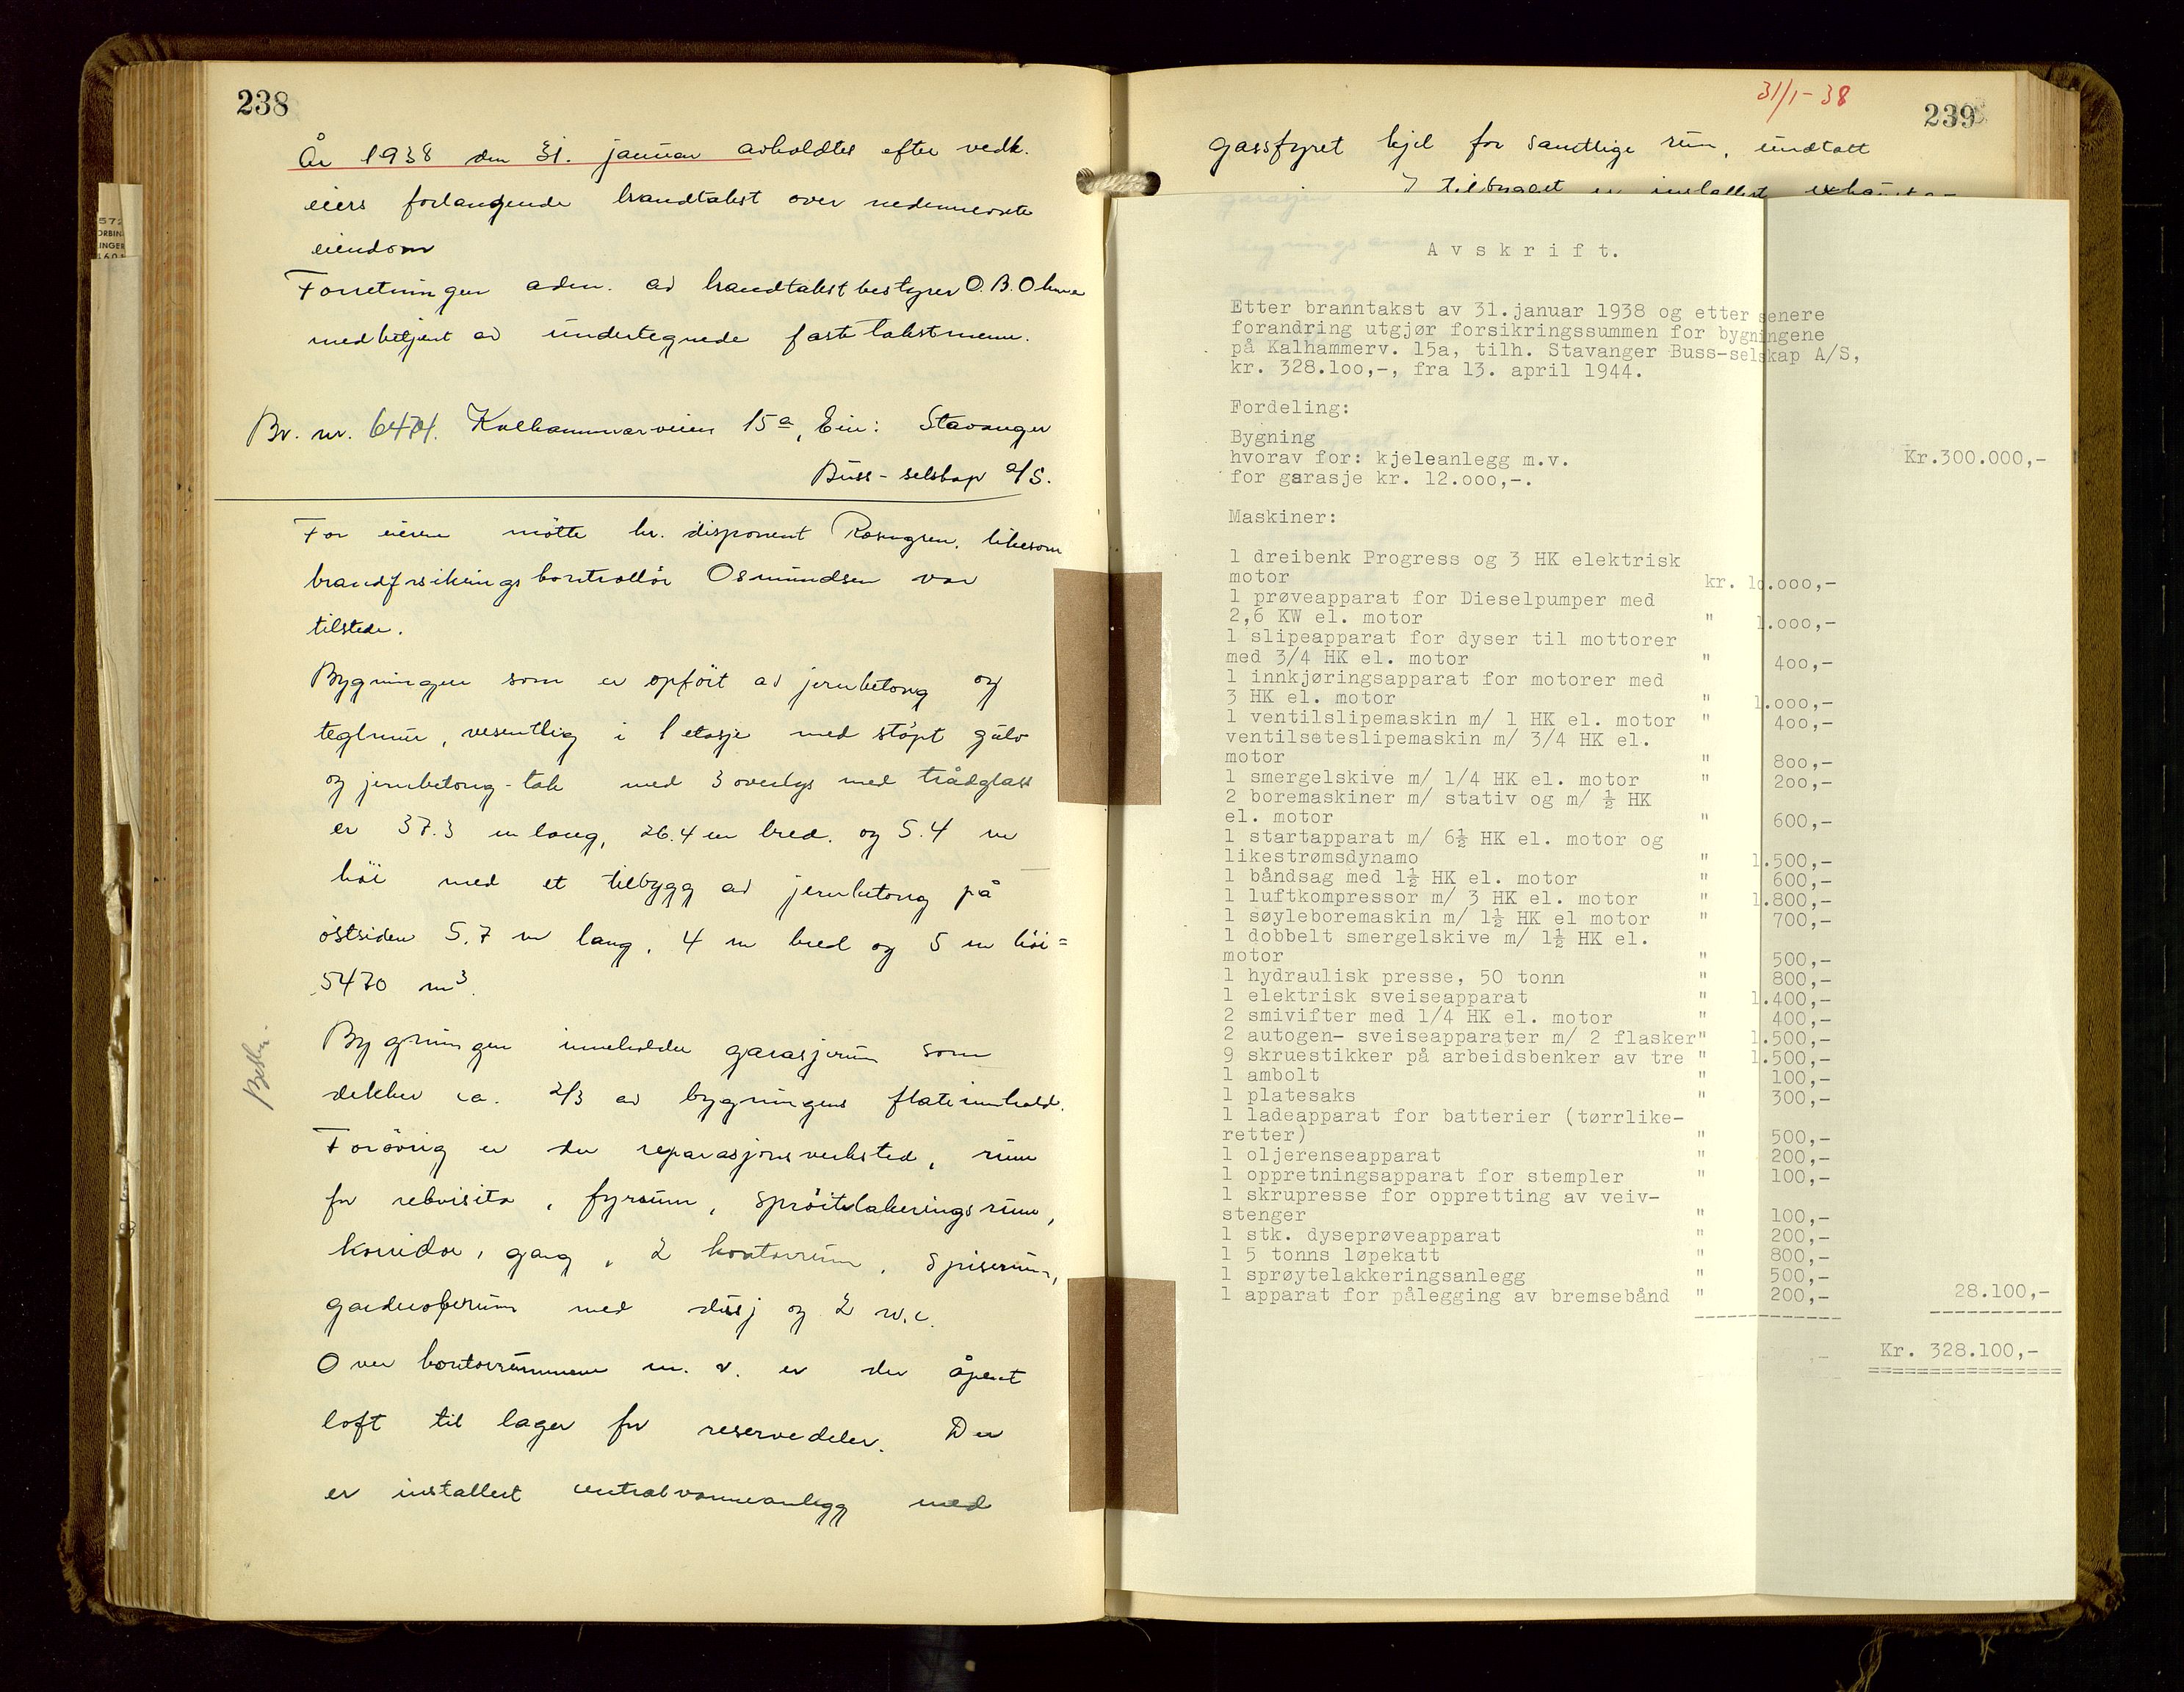 238
År 1938 den 31. januar avholdtes efter vedk.
eiers forlangende brandtakst over nedennevnte
eiendom
Forretningen adm. av brandtakstbestyrer O. B. Ohma
medbetjent av undertegnede faste takstmenn.
Br. nr. 6474. Kalhammarveien 15a, Eier: Stavanger
Buss-selskap a/S.
For eieren møtte hr. disponent Rosengren, likesom
brandforsikringskontrollør Osmundsen var
tilstede.
Bygningen som er opført av jernbetong og
teglmur, vesentlig i 1 etasje med støpt gulv
og jernbetong-tak med 3 overlys med trådglass
er 37.3 m lang, 26.4 m bred. og 5.4 m
høi med et tilbygg av jernbetong på
østsiden 5,7 m lang, 4 m bred og 5 m høi =
5470 m³.
Bygningen inneholder garasjerum som
dekker ca. 2/3 av bygningens flateinnhold.
Forøvrig er der reparasjonsverksted, rum
for rekvisita, fyrrum, sprøitelakeringsrum,
korridor, gang, 2 kontorrum, spiserum,
garderoberum med dusj og 2 w.c.
Over kontorrummene m. v. er der åpent
loft til lager for reservedeler. Der
er installert centralvarmeanlegg med
572
ORBIN
INGER
460
31/1-38
239
gassfyret kjel for samtlige rum, undtatt
I tilbygget er installert
Avskrift.
Etter branntakst av 31.januar 1938 og etter senere
forandring utgjør forsikringssummen for bygningene
på Kalhammerv. 15a, tilh. Stavanger Buss-selskap A/S,
kr. 328.1oo,-, fra 13. april 1944.
Fordeling:
Bygning
hvorav for: kjeleanlegg m.v. Kr.300.000,-
for garasje kr. 12.ooo,-.
Maskiner:
1 dreibenk Progress og 3 HK elektrisk
motor kr. 1o.ooo,-
1 prøveapparat for Dieselpumper med
2,6 KW el. motor " 1.ooo,-
1 slipeapparat for dyser til mottorer
med 3/4 HK el. motor " 4oo,-
1 innkjøringsapparat for motorer med
3 HK el. motor " 1.ooo,-
1 ventilslipemaskin m/ 1 HK el. motor " 4oo,-
ventilseteslipemaskin m/ 3/4 HK el.
motor " 8oo,-
1 smergelskive m/ 1/4 HK el. motor " 2oo,-
2 boremaskiner m/ stativ og m/ ½ HK
el. motor " 600,-
1 startapparat m/ 6½ HK el. motor og
likestrømsdynamo " 1.500,-
1 båndsag med 1½ HK el. motor " 600,-
1 luftkompressor m/ 3 HK el. motor " 1.800,-
1 søyleboremaskin m/ 1½ HK el motor " 700,-
1 dobbelt smergelskive m/ 1½ HK el.
motor " 500,-
1 hydraulisk presse, 50 tonn " 800,-
1 elektrisk sveiseapparat " 1.400,-
2 smivifter med 1/4 HK el. motor " 400,-
2 autogen- sveiseapparater m/ 2 flasker" 1.500,-
9 skruestikker på arbeidsbenker av tre " 1.500,-
1 ambolt " 100,-
1 platesaks " 300,-
1 ladeapparat for batterier (tørrlike-
retter) " 500,-
1 oljerenseapparat " 200,-
1 oppretningsapparat for stempler " 100,-
1 skrupresse for oppretting av veiv-
stenger " 100,-
1 stk. dyseprøveapparat " 200,-
1 5 tonns løpekatt " 800,-
1 sprøytelakkeringsanlegg " 500,-
1 apparat for pålegging av bremsebånd " 200,- 28.100,-
Kr. 328.100,-